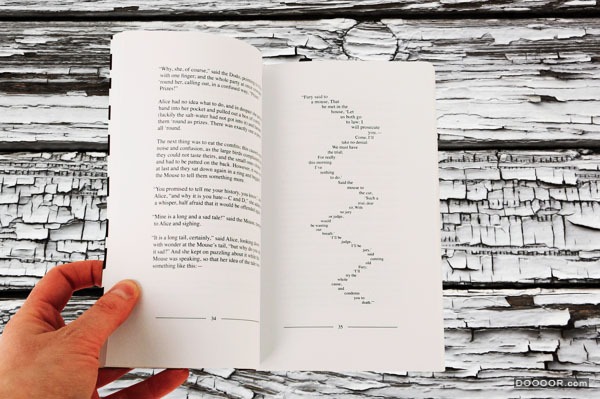 "Why, she, of course," said the Dodo,
with one finger; and the whole party at once
'round her, calling out, in a confused way,
Prizes!"
Alice had no idea what to do, and in despair
hand into her pocket and pulled out a box of
(luckily the salt-water had not got into it) and
them 'round as prizes. There was exactly one
all 'round.
The next thing was to eat the comfits; this caused
noise and confusion, as the large birds complained
they could not taste theirs, and the small ones
and had to be patted on the back. However, it
at last and they sat down again in a ring and
the Mouse to tell them something more.
"You promised to tell me your history, you know,"
Alice, "and why it is you hate—C and D," she
a whisper, half afraid that it would be offended
"Mine is a long and a sad tale!" said the Mouse,
to Alice and sighing.
"It is a long tail, certainly," said Alice, looking
with wonder at the Mouse's tail, "but why do you
it sad?" And she kept on puzzling about it while
Mouse was speaking, so that her idea of the tale
something like this:—
34
"Fury said to
a mouse, That
he met in the
house, 'Let
us both go
to law: I
will prosecute
you.—
Come, I'll
take no denial:
We must have
the trial;
For really
this morning
I've
nothing
to do.'
Said the
mouse to
the cur,
'Such a
trial, dear
sir, With
no jury
or judge,
would
be wasting
our
breath.'
'I'll be
judge,
I'll be
jury,'
said
cunning
old
Fury;
'I'll
try the
whole
cause,
and
condemn
you to
death.'"
35
DOOOOR.com